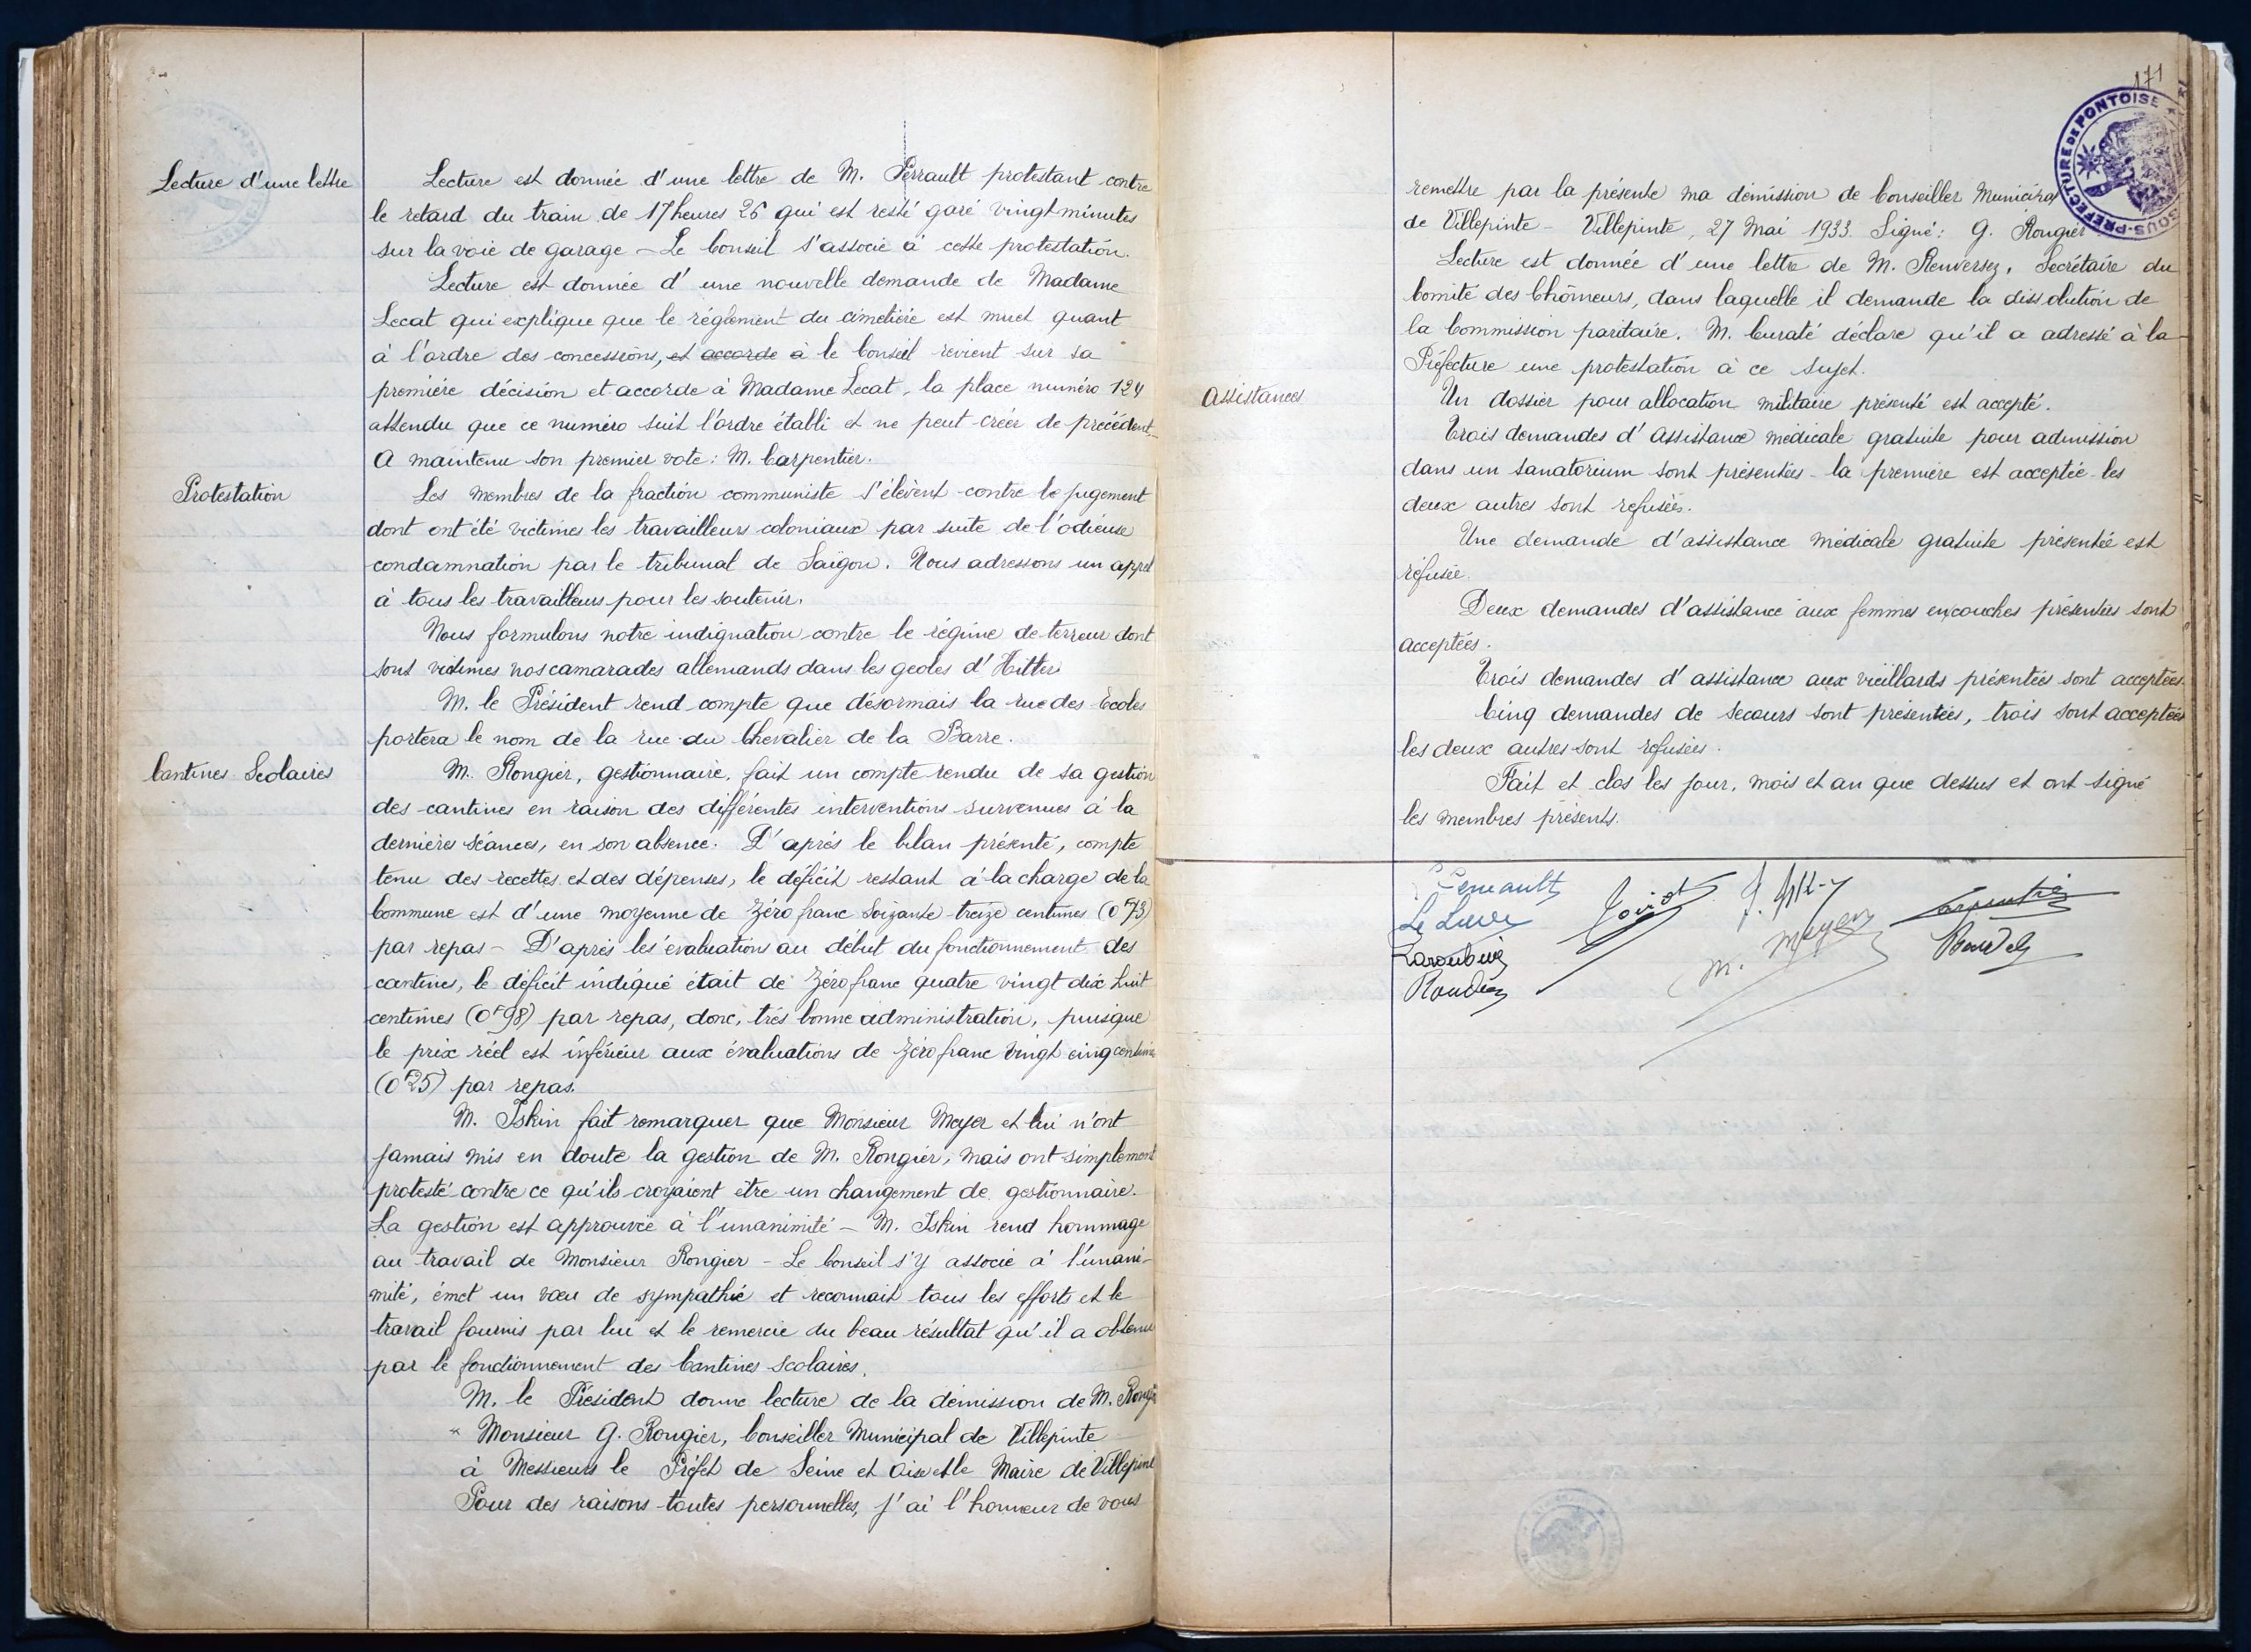 Lecture d'une lettre
Lecture est donnée d'une lettre de M. Perrault protestant contre
le retard du train de 17 heures 26 qui est resté garé vingt minutes
sur la voie de garage - Le Conseil s'associe à cette protestation.
Lecture est donnée d'une nouvelle demande de Madame
Lecat qui explique que le réglement du cimetière est muet quant
à l'ordre des concessions, et accorde à le Conseil revient sur sa
première décision et accorde à Madame Lecat, la place numéro 124
attendu que ce numéro suit l'ordre établi et ne peut créer de précédent_
A maintenu son premier vote : M. Carpentier.
Protestation
Les membres de la fraction communiste s'élèvent contre le jugement
dont ont été victimes les travailleurs coloniaux par suite de l'odieuse
condamnation par le tribunal de Saïgon. Nous adressons un appel
à tous les travailleurs pour les soutenir.
Nous formulons notre indignation contre le régime de terreur dont
sont victimes nos camarades allemands dans les geoles d'Hitler
M. le Président rend compte que désormais la rue des Ecoles
portera le nom de la rue du Chevalier de la Barre.
Cantines Scolaires
M. Rongier, gestionnaire, fait un compte rendu de sa gestion
des cantines en raison des différentes interventions survenues à la
dernières séances, en son absence. D'après le bilan présenté, compte
tenu des recettes et des dépenses, le déficit restant à la charge de la
Commune est d'une moyenne de Zéro franc Soixante-treize centimes (0F73)
par repas - D'après les évaluations au début du fonctionnement des
cantines, le déficit indiqué était de Zéro franc quatre vingt dix huit
centimes (0F98) par repas, donc, très bonne administration, puisque
le prix réel est inférieur aux évaluations de Zéro franc vingt cinq centimes
(0F25) par repas.
M. Iskin fait remarquer que Monsieur Meyer et lui n'ont
jamais mis en doute la gestion de M. Rongier, mais ont simplement
protesté contre ce qu'ils croyaient être un changement de gestionnaire.
La gestion est approuvée à l'unanimité - M. Iskin rend hommage
au travail de Monsieur Rongier - Le Conseil s'y associe à l'unani-
mité, émet un vœu de sympathie et reconnait tous les efforts et le
travail fournis par lui et le remercie du beau résultat qu'il a obtenu
par le fonctionnement des Cantines scolaires.
M. le Président donne lecture de la démission de M. Rongier
" Monsieur G. Rongier, Conseiller Municipal de Villepinte
à Messieurs le Préfet de Seine et Oise et le Maire de Villepinte
Pour des raisons toutes personnelles, j'ai l'honneur de vous
171
SOUS-PREFECTURE DE PONTOISE
remettre par la présente ma démission de Conseiller Municipal
de Villepinte - Villepinte, 27 Mai 1933. Signé : G. Rongier
Lecture est donnée d'une lettre de M. Renversez, Secrétaire du
Comité des Chômeurs, dans laquelle il demande la dissolution de
la Commission paritaire. M. Curaté déclare qu'il a adressé à la
Préfecture une protestation à ce sujet.
Assistances
Un dossier pour allocation militaire présenté est accepté.
Trois demandes d'Assistance médicale gratuite pour admission
dans un sanatorium sont présentées - la première est acceptée - les
deux autres sont refusées.
Une demande d'assistance médicale gratuite présentée est
refusée.
Deux demandes d'assistance aux femmes en couches présentées sont
acceptées.
Trois demandes d'assistance aux vieillards présentées sont acceptées.
Cinq demandes de secours sont présentées, trois sont acceptées
les deux autres sont refusées.
Fait et clos les jour, mois et an que dessus et ont signé
les membres présents.
M. Meyer
Carpentier